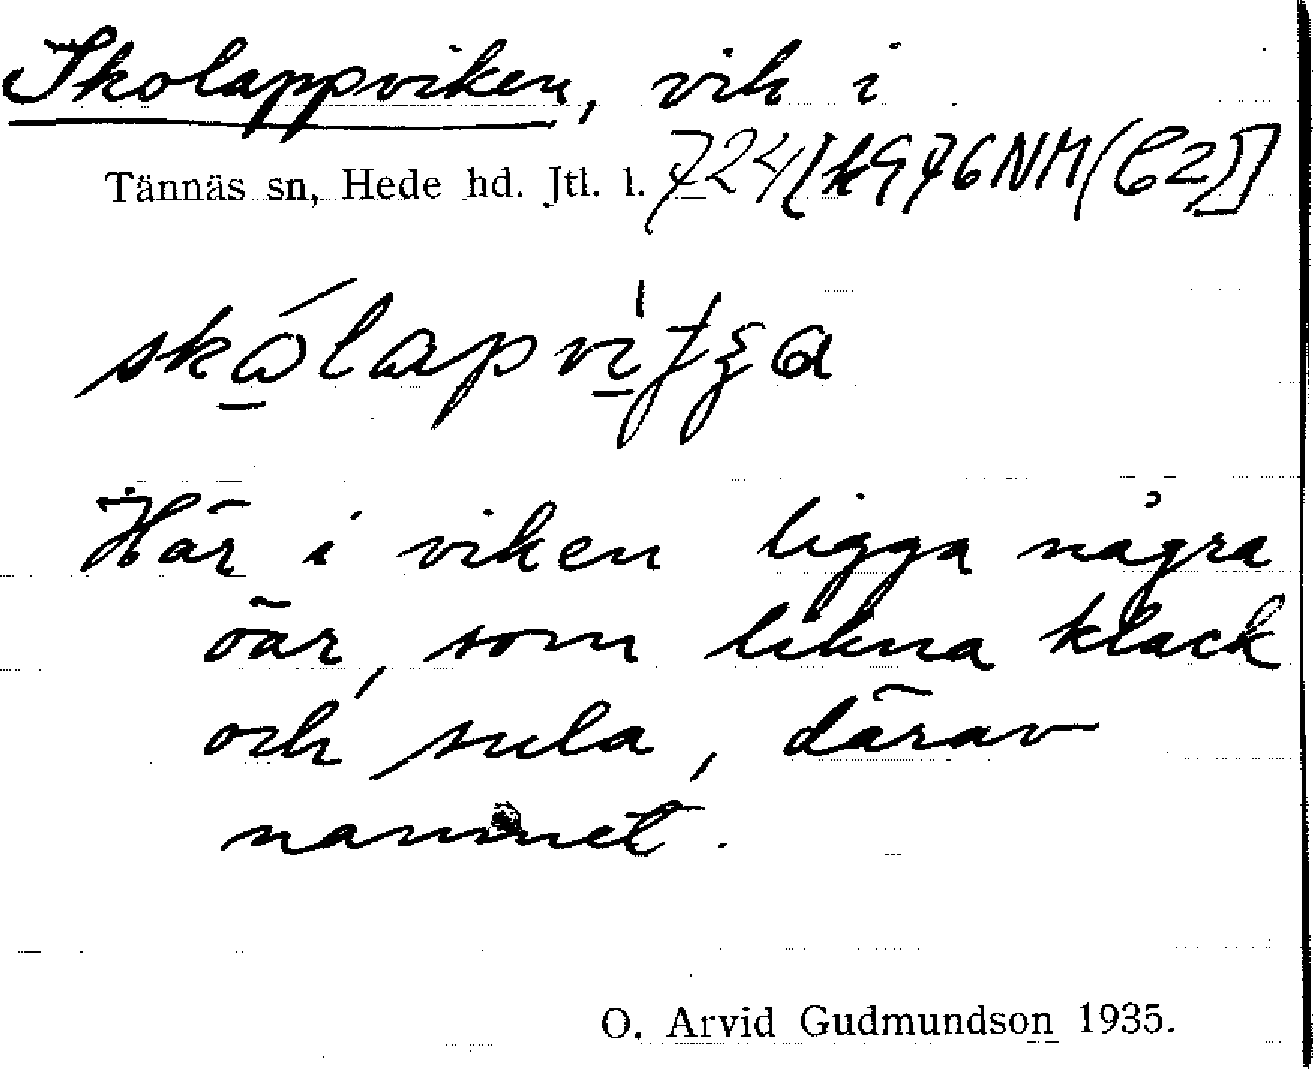 Skolappviken, vik i
Tännäs sn, Hede hd. Jtl. l. 724
Här i viken ligga några
öar, som likna klack
och sula, därav
namnet.
O. Arvid Gudmundson 1935.